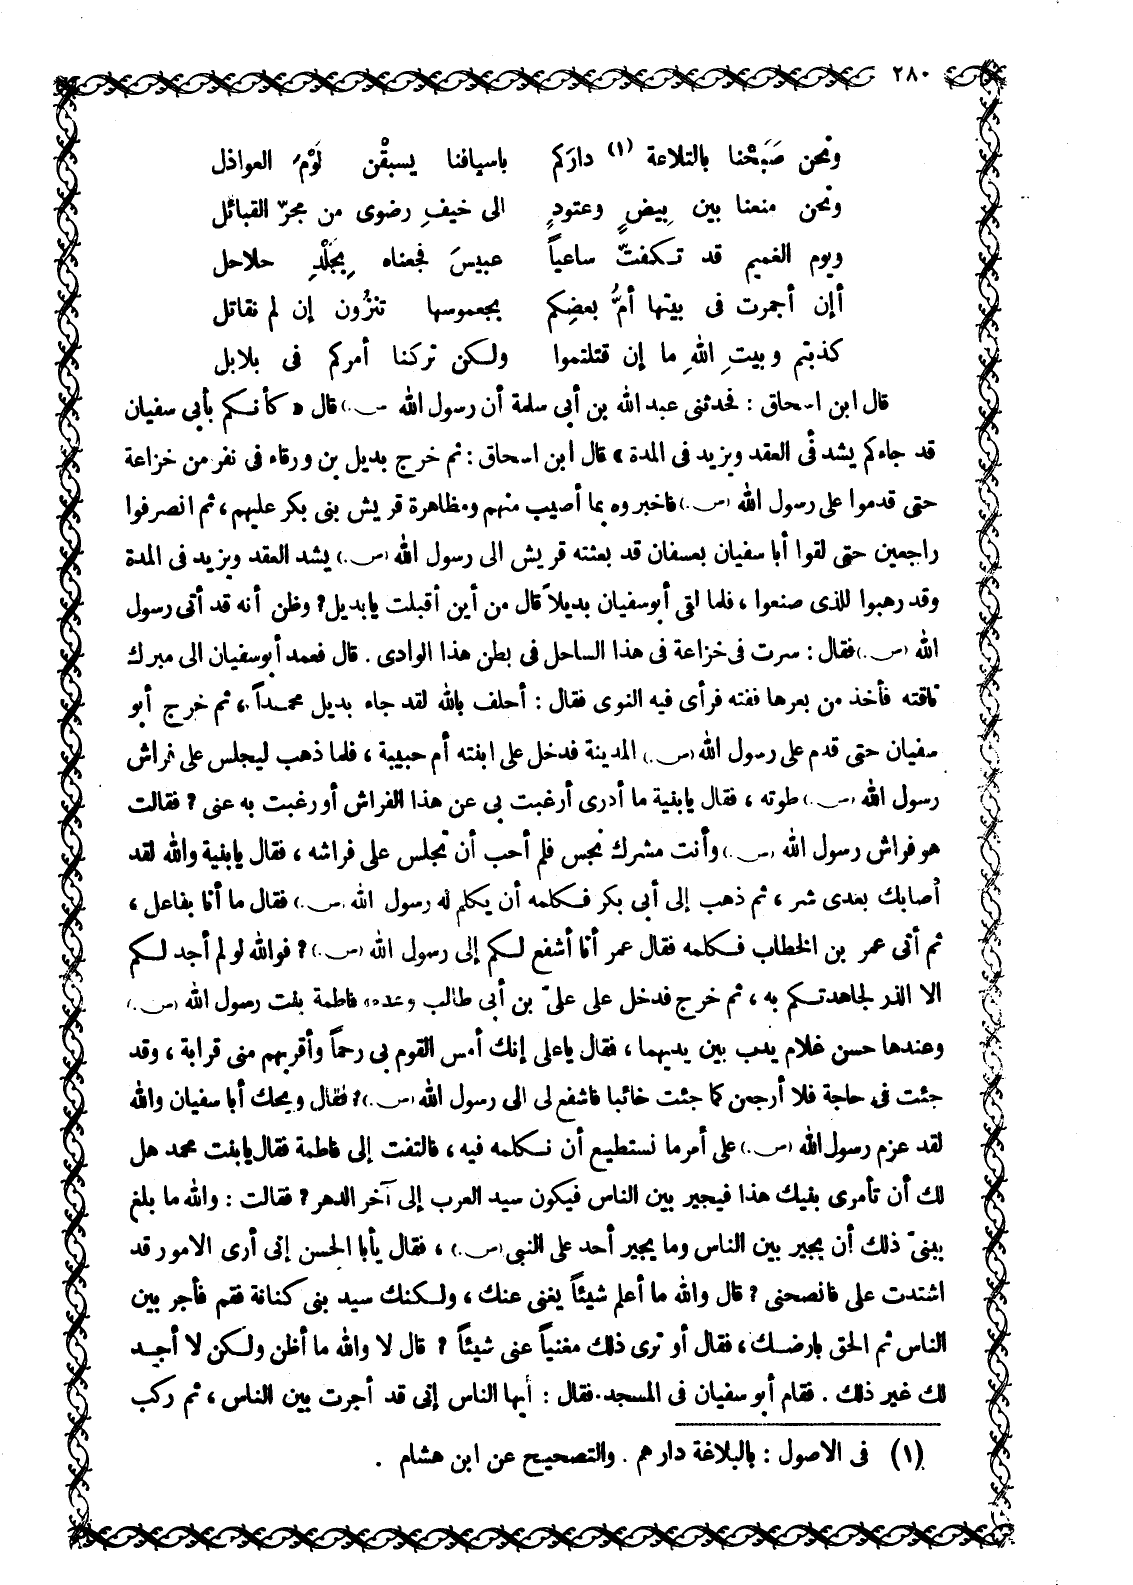 ٢٨٠
ونحن صَبَحْنا بالتلاعة (١) دارَكم باسيافنا يسبقْن لَوْمَ العواذل
ونحن منعنا بين بِيضٍ وعتودٍ الى خيفِ رضوى من مجرّ القبائل
ويوم الغميم قد تكفتّ ساعياً عبيسَ فجعناه بِجَلْدِ حلاحل
أإن أجمرت فى بيتها أمُّ بعضِكم بجعموسها تنزُون إن لم نقاتل
كذبتم وبيتِ اللهِ ما إن قتلتموا ولكن تركنا أمركم فى بلابل
قال ابن اسحاق : فحدثنى عبد الله بن أبي سلمة أن رسول الله (س.) قال « كأنكم بأبي سفيان
قد جاءكم يشد فى العقد ويزيد فى المدة » قال ابن اسحاق : ثم خرج بديل بن ورقاء فى نفر من خزاعة
حتى قدموا على رسول الله (س.) فاخبروه بما أصيب منهم ومظاهرة قريش بنى بكر عليهم ، ثم انصرفوا
راجعين حتى لقوا أبا سفيان بعسفان قد بعثته قريش الى رسول الله (س.) يشد العقد ويزيد فى المدة
وقد رهبوا للذى صنعوا ، فلما لقى أبوسفيان بديلاً قال من أين أقبلت يابديل ? وظن أنه قد أتى رسول
الله (س.) فقال : سرت فى خزاعة فى هذا الساحل فى بطن هذا الوادى . قال فعمد أبوسفيان الى مبرك
ناقته فأخذ من بعرها ففته فرأى فيه النوى فقال : أحلف بالله لقد جاء بديل محمداً ، ثم خرج أبو
سفيان حتى قدم على رسول الله (س.) المدينة فدخل على ابنته أم حبيبة ، فلما ذهب ليجلس على فراش
رسول الله (س.) طوته ، فقال يابنية ما أدرى أرغبت بى عن هذا الفراش أو رغبت به عنى ? فقالت
هو فراش رسول الله (س.) وأنت مشرك نجس فلم أحب أن تجلس على فراشه ، فقال يابنية والله لقد
أصابك بعدى شر ، ثم ذهب إلى أبى بكر فكلمه أن يكلم له رسول الله (س.) فقال ما أنا بفاعل ،
ثم أتى عمر بن الخطاب فكلمه فقال عمر أنا أشفع لكم إلى رسول الله (س.) ? فوالله لو لم أجد لكم
الا الذر لجاهدتكم به ، ثم خرج فدخل على علىّ بن أبي طالب وعنده فاطمة بنت رسول الله (س.)
وعندها حسن غلام يدب بين يديهما ، فقال ياعلى إنك أمس القوم بى رحماً وأقربهم منى قرابة ، وقد
جئت فى حاجة فلا أرجعن كما جئت خائبا فاشفع لى الى رسول الله (س.) ? فقال ويحك أبا سفيان والله
لقد عزم رسول الله (س.) على أمر ما نستطيع أن نكلمه فيه ، فالتفت إلى فاطمة فقال يابنت محمد هل
لك أن تأمرى بنيك هذا فيجير بين الناس فيكون سيد العرب إلى آخر الدهر ? فقالت : والله ما بلغ
ببنىّ ذلك أن يجير بين الناس وما يجير أحد على النبى (س.) ، فقال يأبا الحسن إنى أرى الامور قد
اشتدت على فانصحنى ? قال والله ما أعلم شيئاً يغنى عنك ، ولكنك سيد بنى كنانة فقم فأجر بين
الناس ثم الحق بارضك ، فقال أو ترى ذلك مغنياً عنى شيئاً ? قال لا والله ما أظن ولكن لا أجد
لك غير ذلك . فقام أبو سفيان فى المسجد . فقال : أيها الناس إنى قد أجرت بين الناس ، ثم ركب
(١) فى الاصول : بالبلاغة دارهم . والتصحيح عن ابن هشام .